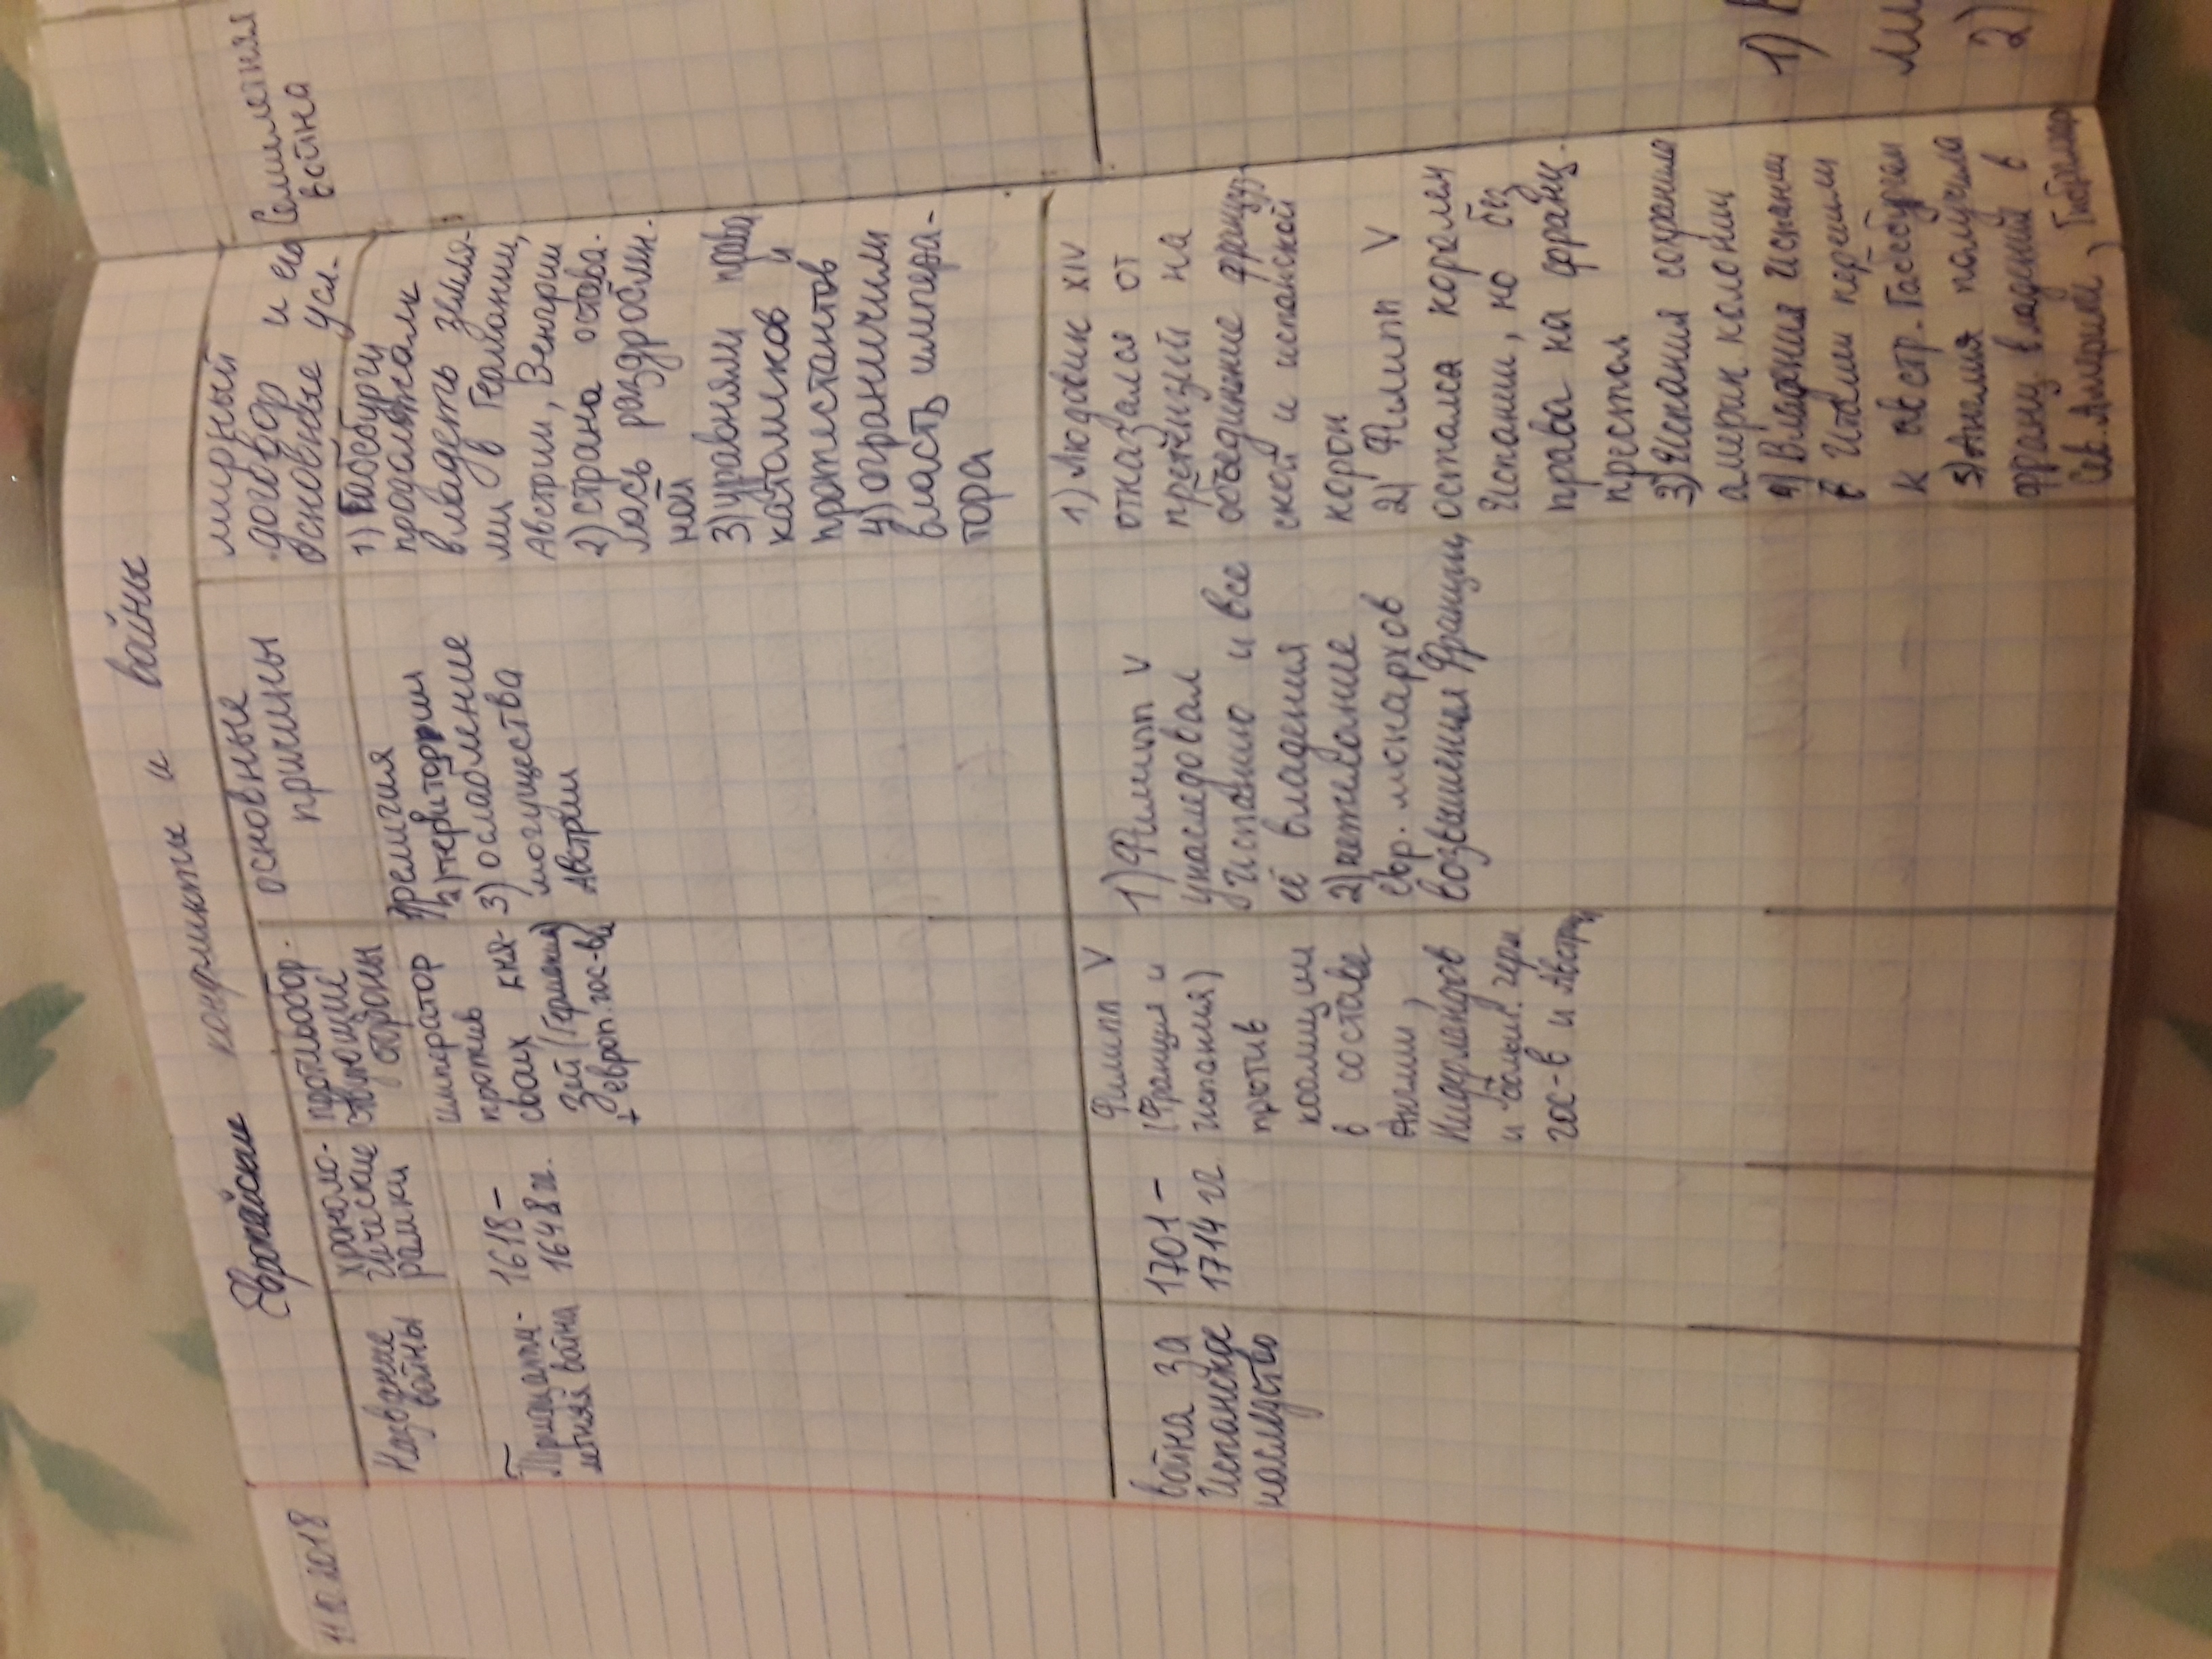 11.10.2018
Европейские конфликты и войны
Название
войны
хроноло-
гические
рамки
противобор.
ствующие
стороны
основные
причины
мирный
договор и его
основные усл.
Тридцати-
летняя война
1618 –
1648 гг.
император
против
своих кня-
зей (Германия)
+ европ. гос-ва
1) религия
2) территория
3) ослабление
могущества
Австрии
1) Габсбурги
продолжали
владеть земля-
ми в Германии,
Австрии, Венгрии
2) страна остава-
лась раздроблен.
ной
3) уравняли права
католиков и
протестантов
4) ограничили
власть импера-
тора
война за
Испанское
наследство
1701 –
1714 гг.
Филипп V
(Франция и
Испания)
против
коалиции
в составе
Англии,
Нидерландов
и больш. герм
гос-в и Австрии
1) Филипп V
унаследовал
Испанию и все
её владения
2) нежелание
евр. монархов
возвышения Франции
1) Людовик XIV
отказался от
претензий на
объединение француз
ской и испанской
корон
2) Филипп V
остался королем
Испании, но без
права на франц.
престол
3) Испания сохранила
америк колонии
4) Владения Испании
в Италии перешли
к австр. Габсбургам
5) Англия получила
франц владений в
Сев. Америке, Гибралтар
Семилетняя
война
1)
2)